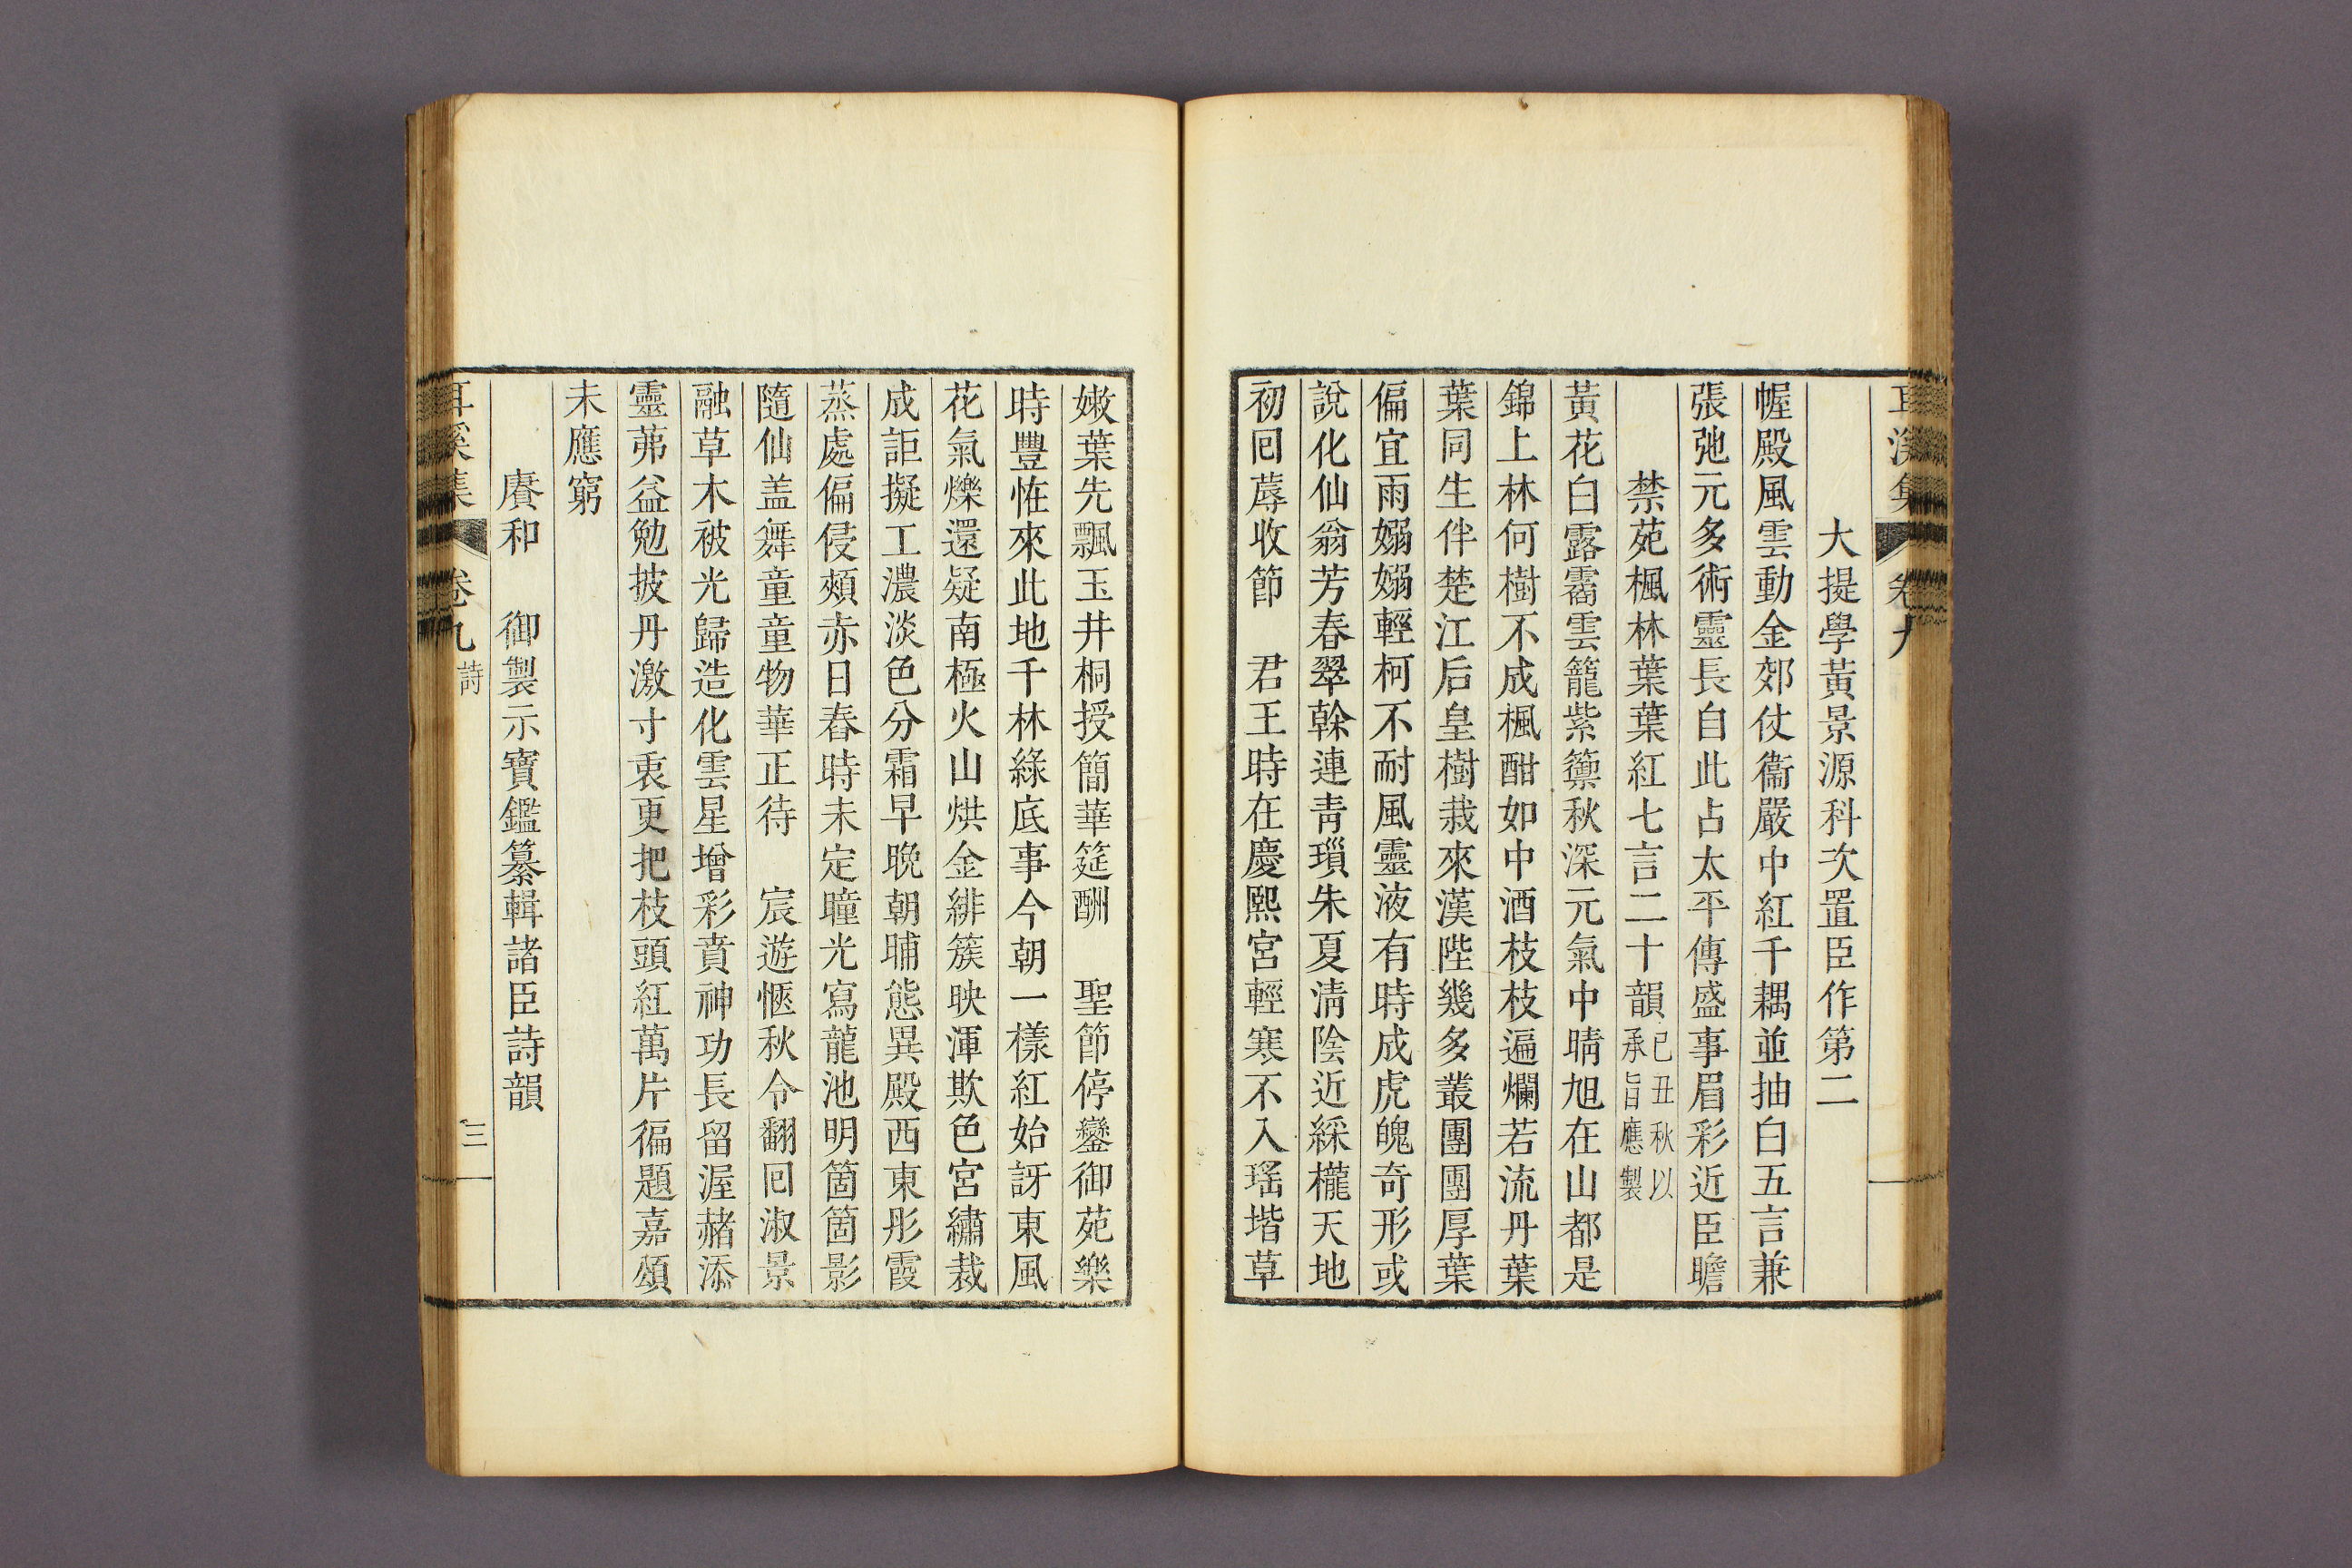 大提學黃景源科次置臣作第二
幄殿風雲動金郊仗衞嚴中紅千耦並抽白五言兼
張弛元多術靈長自此占太平傳盛事眉彩近臣瞻
禁苑楓林葉葉紅七言二十韻 己丑秋以承旨應製
黃花白露靄雲籠紫籞秋深元氣中晴旭在山都是
錦上林何樹不成楓酣如中酒枝枝遍爛若流丹葉
葉同生伴楚江后皇樹栽來漢陛幾多叢團團厚葉
偏宜雨嫋嫋輕柯不耐風靈液有時成虎魄奇形或
說化仙翁芳春翠榦連靑瑣朱夏淸陰近綵櫳天地
初回蓐收節 君王時在慶熙宮輕寒不入瑤堦草
嫩葉先飄玉井桐授簡華筵酬 聖節停鑾御苑樂
時豐恠來此地千林綠底事今朝一樣紅始訝東風
花氣爍還疑南極火山烘金緋簇映渾欺色宮繡裁
成詎擬工濃淡色分霜早晩朝晡態異殿西東彤霞
蒸處偏侵頰赤日舂時未定曈光寫龍池明箇箇影
隨仙盖舞童童物華正待 宸遊愜秋令翻回淑景
融草木被光歸造化雲星增彩賁神功長留渥赭添
靈茀益勉披丹激寸衷更把枝頭紅萬片徧題嘉頌
未應窮
賡和 御製示寶鑑纂輯諸臣詩韻
耳溪集 卷九 詩 三